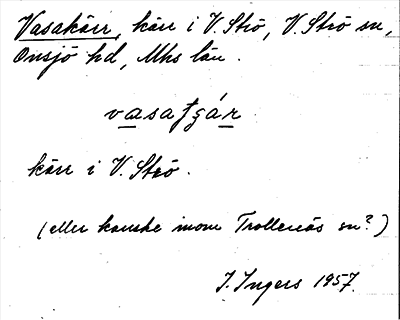 Vasakärr, kärr i V. Strö, V. Strö sn,
Onsjö hd, Mhs län.
vasatgár
kärr i V. Strö.
(eller kanske inom Trollenäs sn?)
I. Ingers 1957.